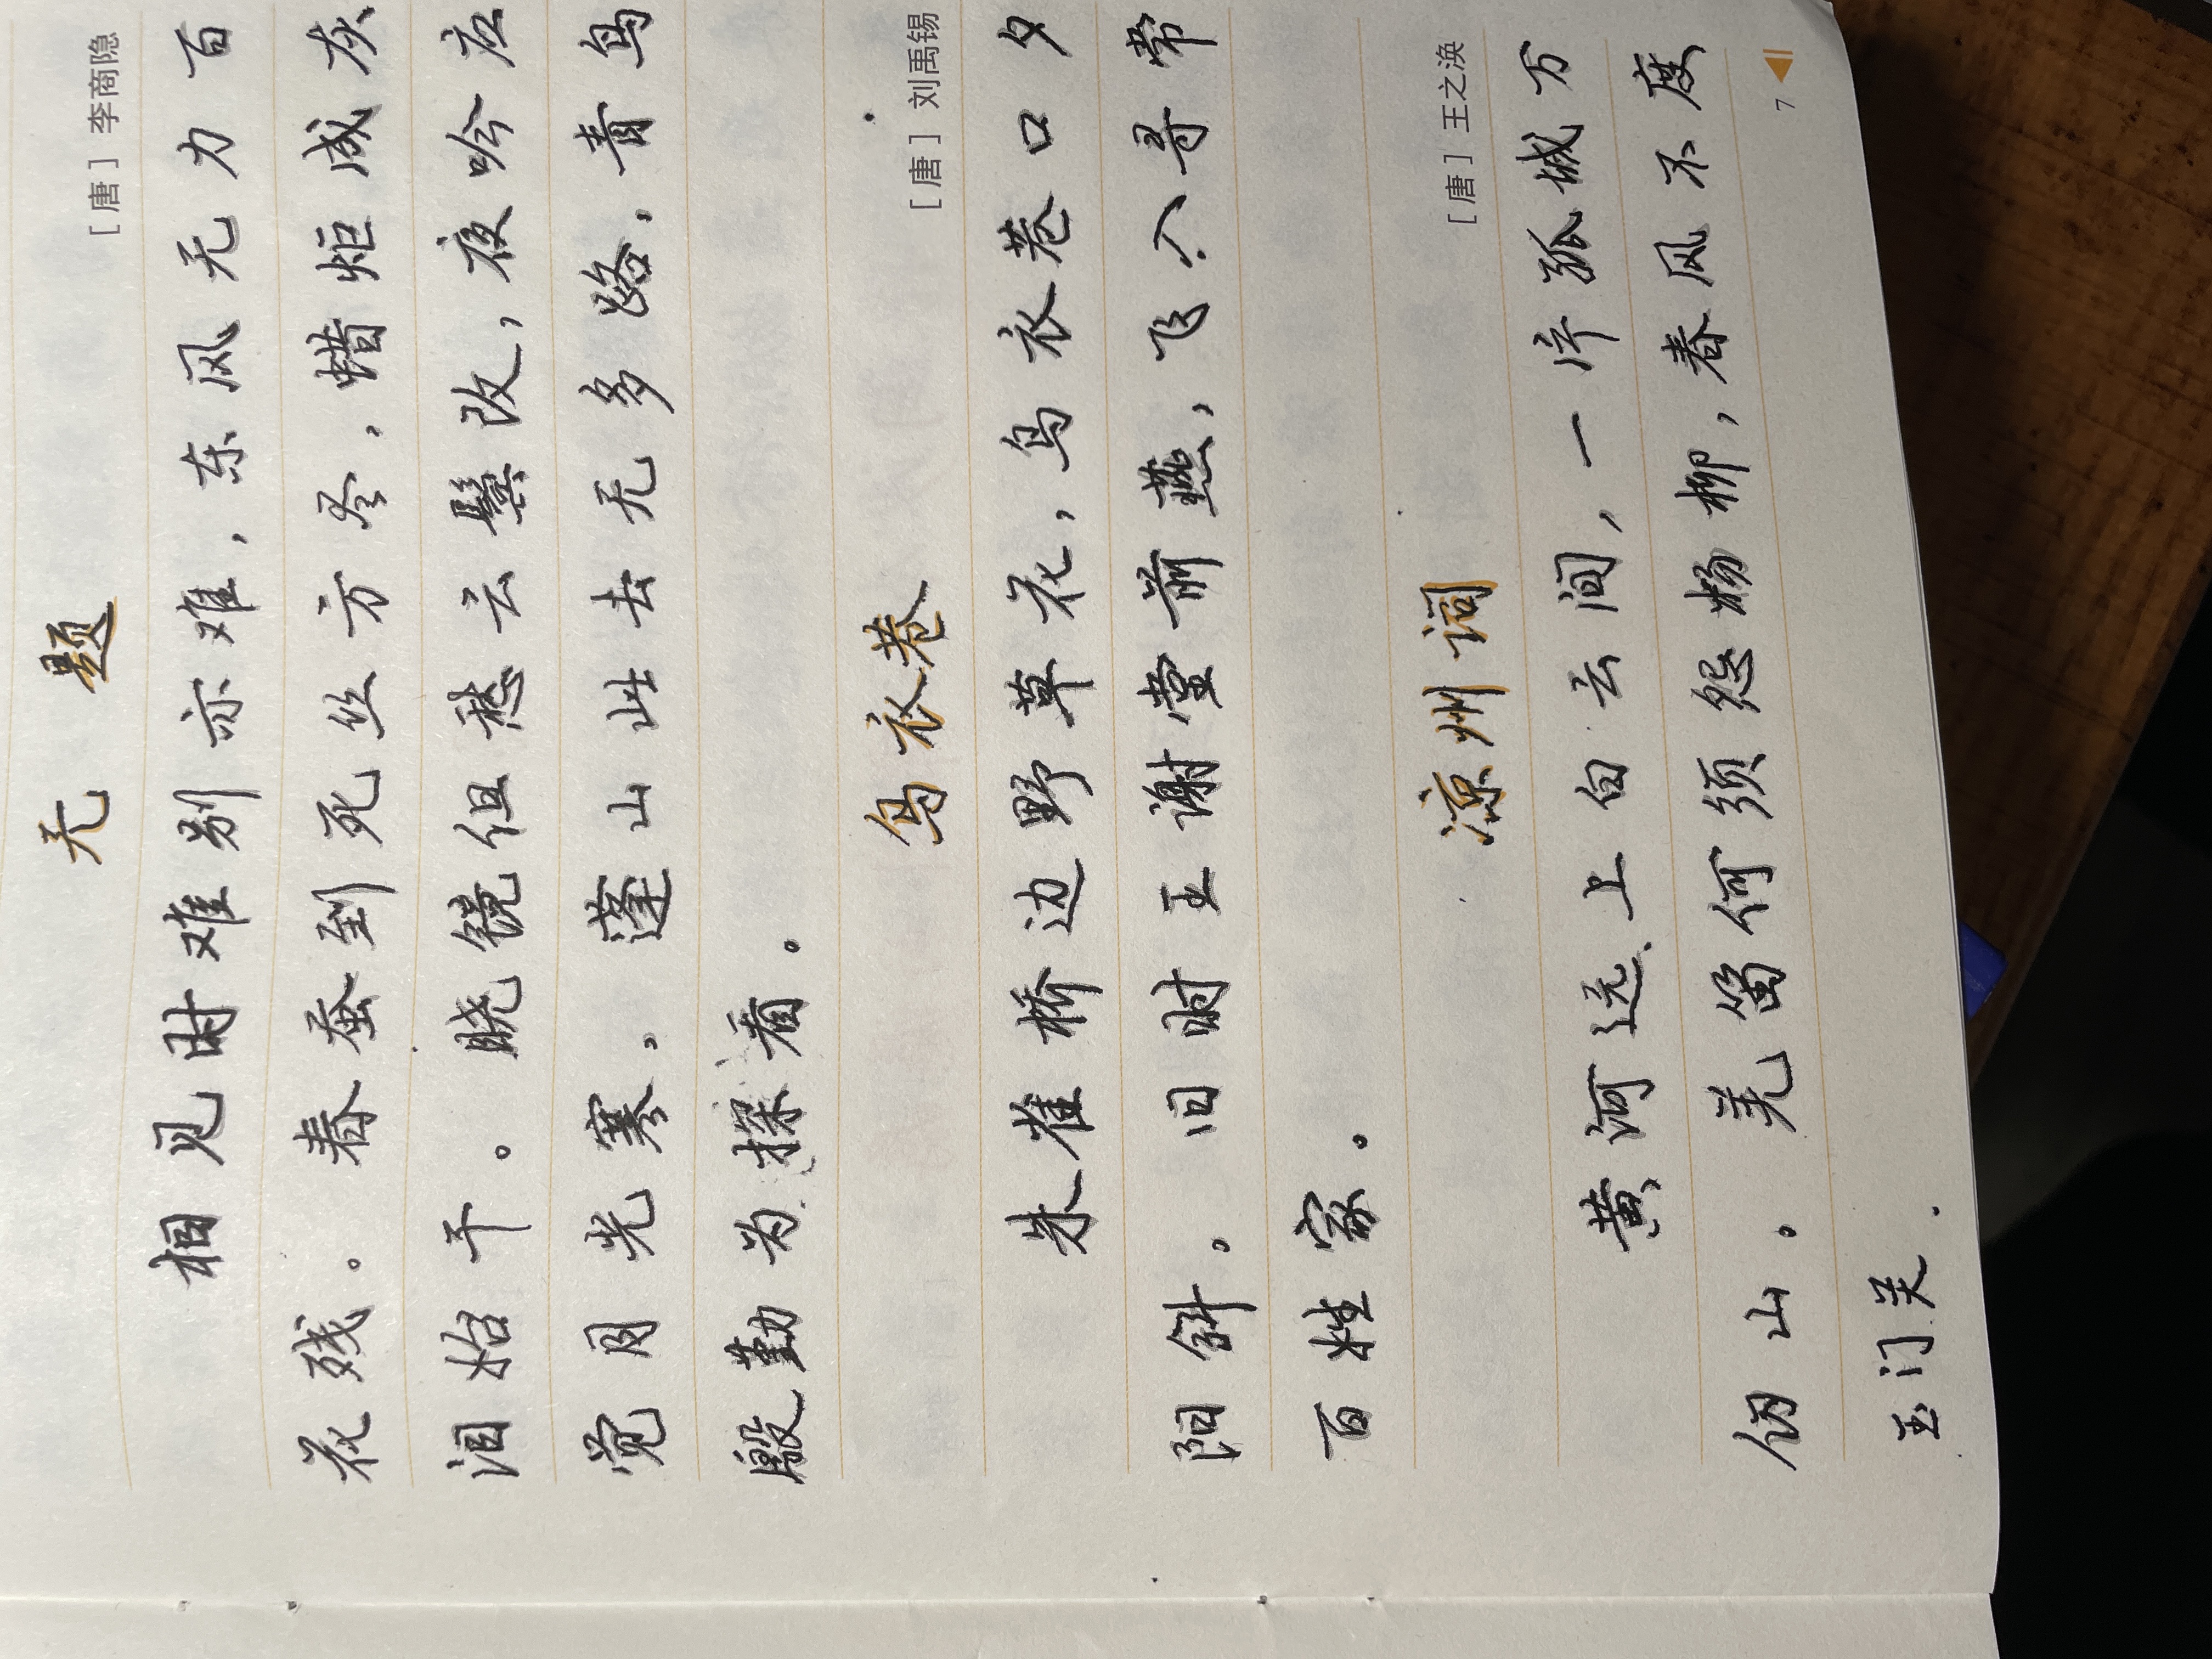 无题
[唐] 李商隐
相见时难别亦难，东风无力百
花残。春蚕到死丝方尽，蜡炬成灰
泪始干。晓镜但愁云鬓改，夜吟应
觉月光寒。蓬山此去无多路，青鸟
殷勤为探看。
乌衣巷
[唐] 刘禹锡
朱雀桥边野草花，乌衣巷口夕
阳斜。旧时王谢堂前燕，飞入寻常
百姓家。
凉州词
[唐] 王之涣
黄河远上白云间，一片孤城万
仞山。羌笛何须怨杨柳，春风不度
7
玉门关.